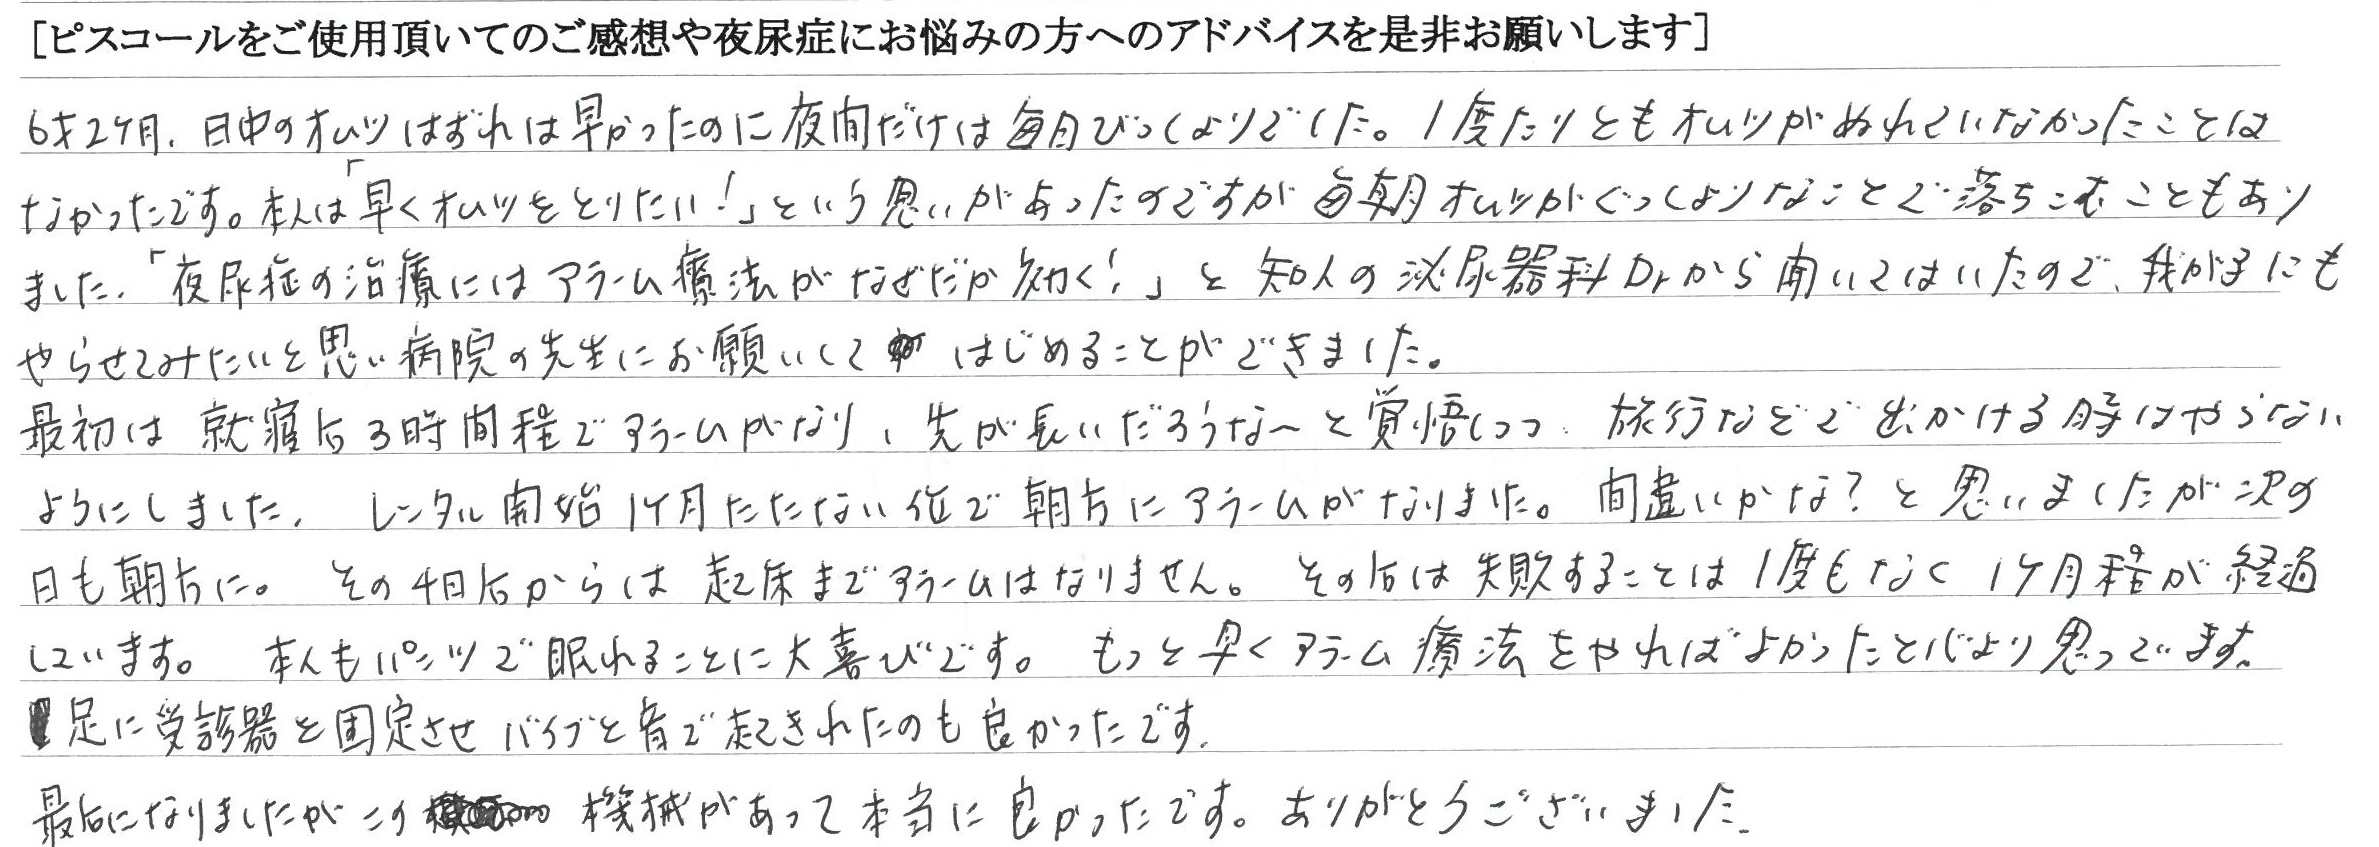 [ピスコールをご使用頂いてのご感想や夜尿症にお悩みの方へのアドバイスを是非お願いします]
6才2ヶ月、日中のオムツはずれは早かったのに夜間だけは毎日びっしょりでした。1度たりともオムツがぬれていなかったことは
なかったです。本人は「早くオムツをとりたい!」という思いがあったのですが毎朝オムツがぐっしょりなことで落ちこむこともあり
ました。「夜尿症の治療にはアラーム療法がなぜだか効く!」と知人の泌尿器科Drから聞いてはいたので、我が子にも
やらせてみたいと思い病院の先生にお願いして はじめることができました。
最初は就寝后3時間程でアラームがなり、先が長いだろうな〜と覚悟しつつ、旅行などで出かける時はやらない
ようにしました。レンタル開始1ヶ月たたない位で朝方にアラームがなりました。間違いかな?と思いましたが次の
日も朝方に。その4日后からは起床までアラームはなりません。その后は失敗することは1度もなく1ヶ月程が経過
しています。本人もパンツで眠れることに大喜びです。もっと早くアラーム療法をやればよかったと心より思っています。
足に受診器を固定させバイブと音で起きれたのも良かったです。
最后になりましたがこの 機械があって本当に良かったです。ありがとうございました。